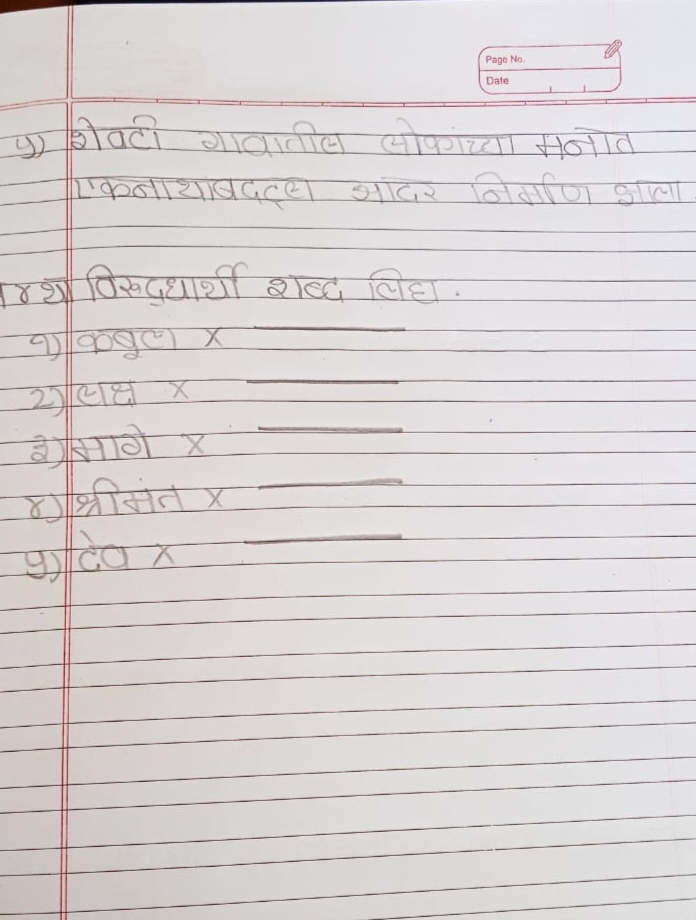 Page No.
Date
५) शेवटी गावातील लोकांच्या मनात
एकनाथाबद्दल आदर निर्माण झाला
प्र४था विरुद्धार्थी शब्द लिहा.
१) कबुल x
२) लक्ष x
३) मागे x
४) श्रीमंत x
५) देव x